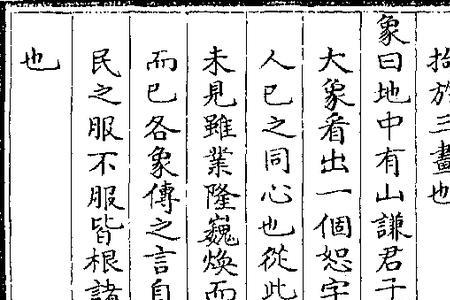 抬於三畫也
象曰地中有山謙君子
大象看出一個恕字
人已之同心也從此
未見雖業隆巍煥而
而已各象傳之言自
民之服不服皆根諸
也